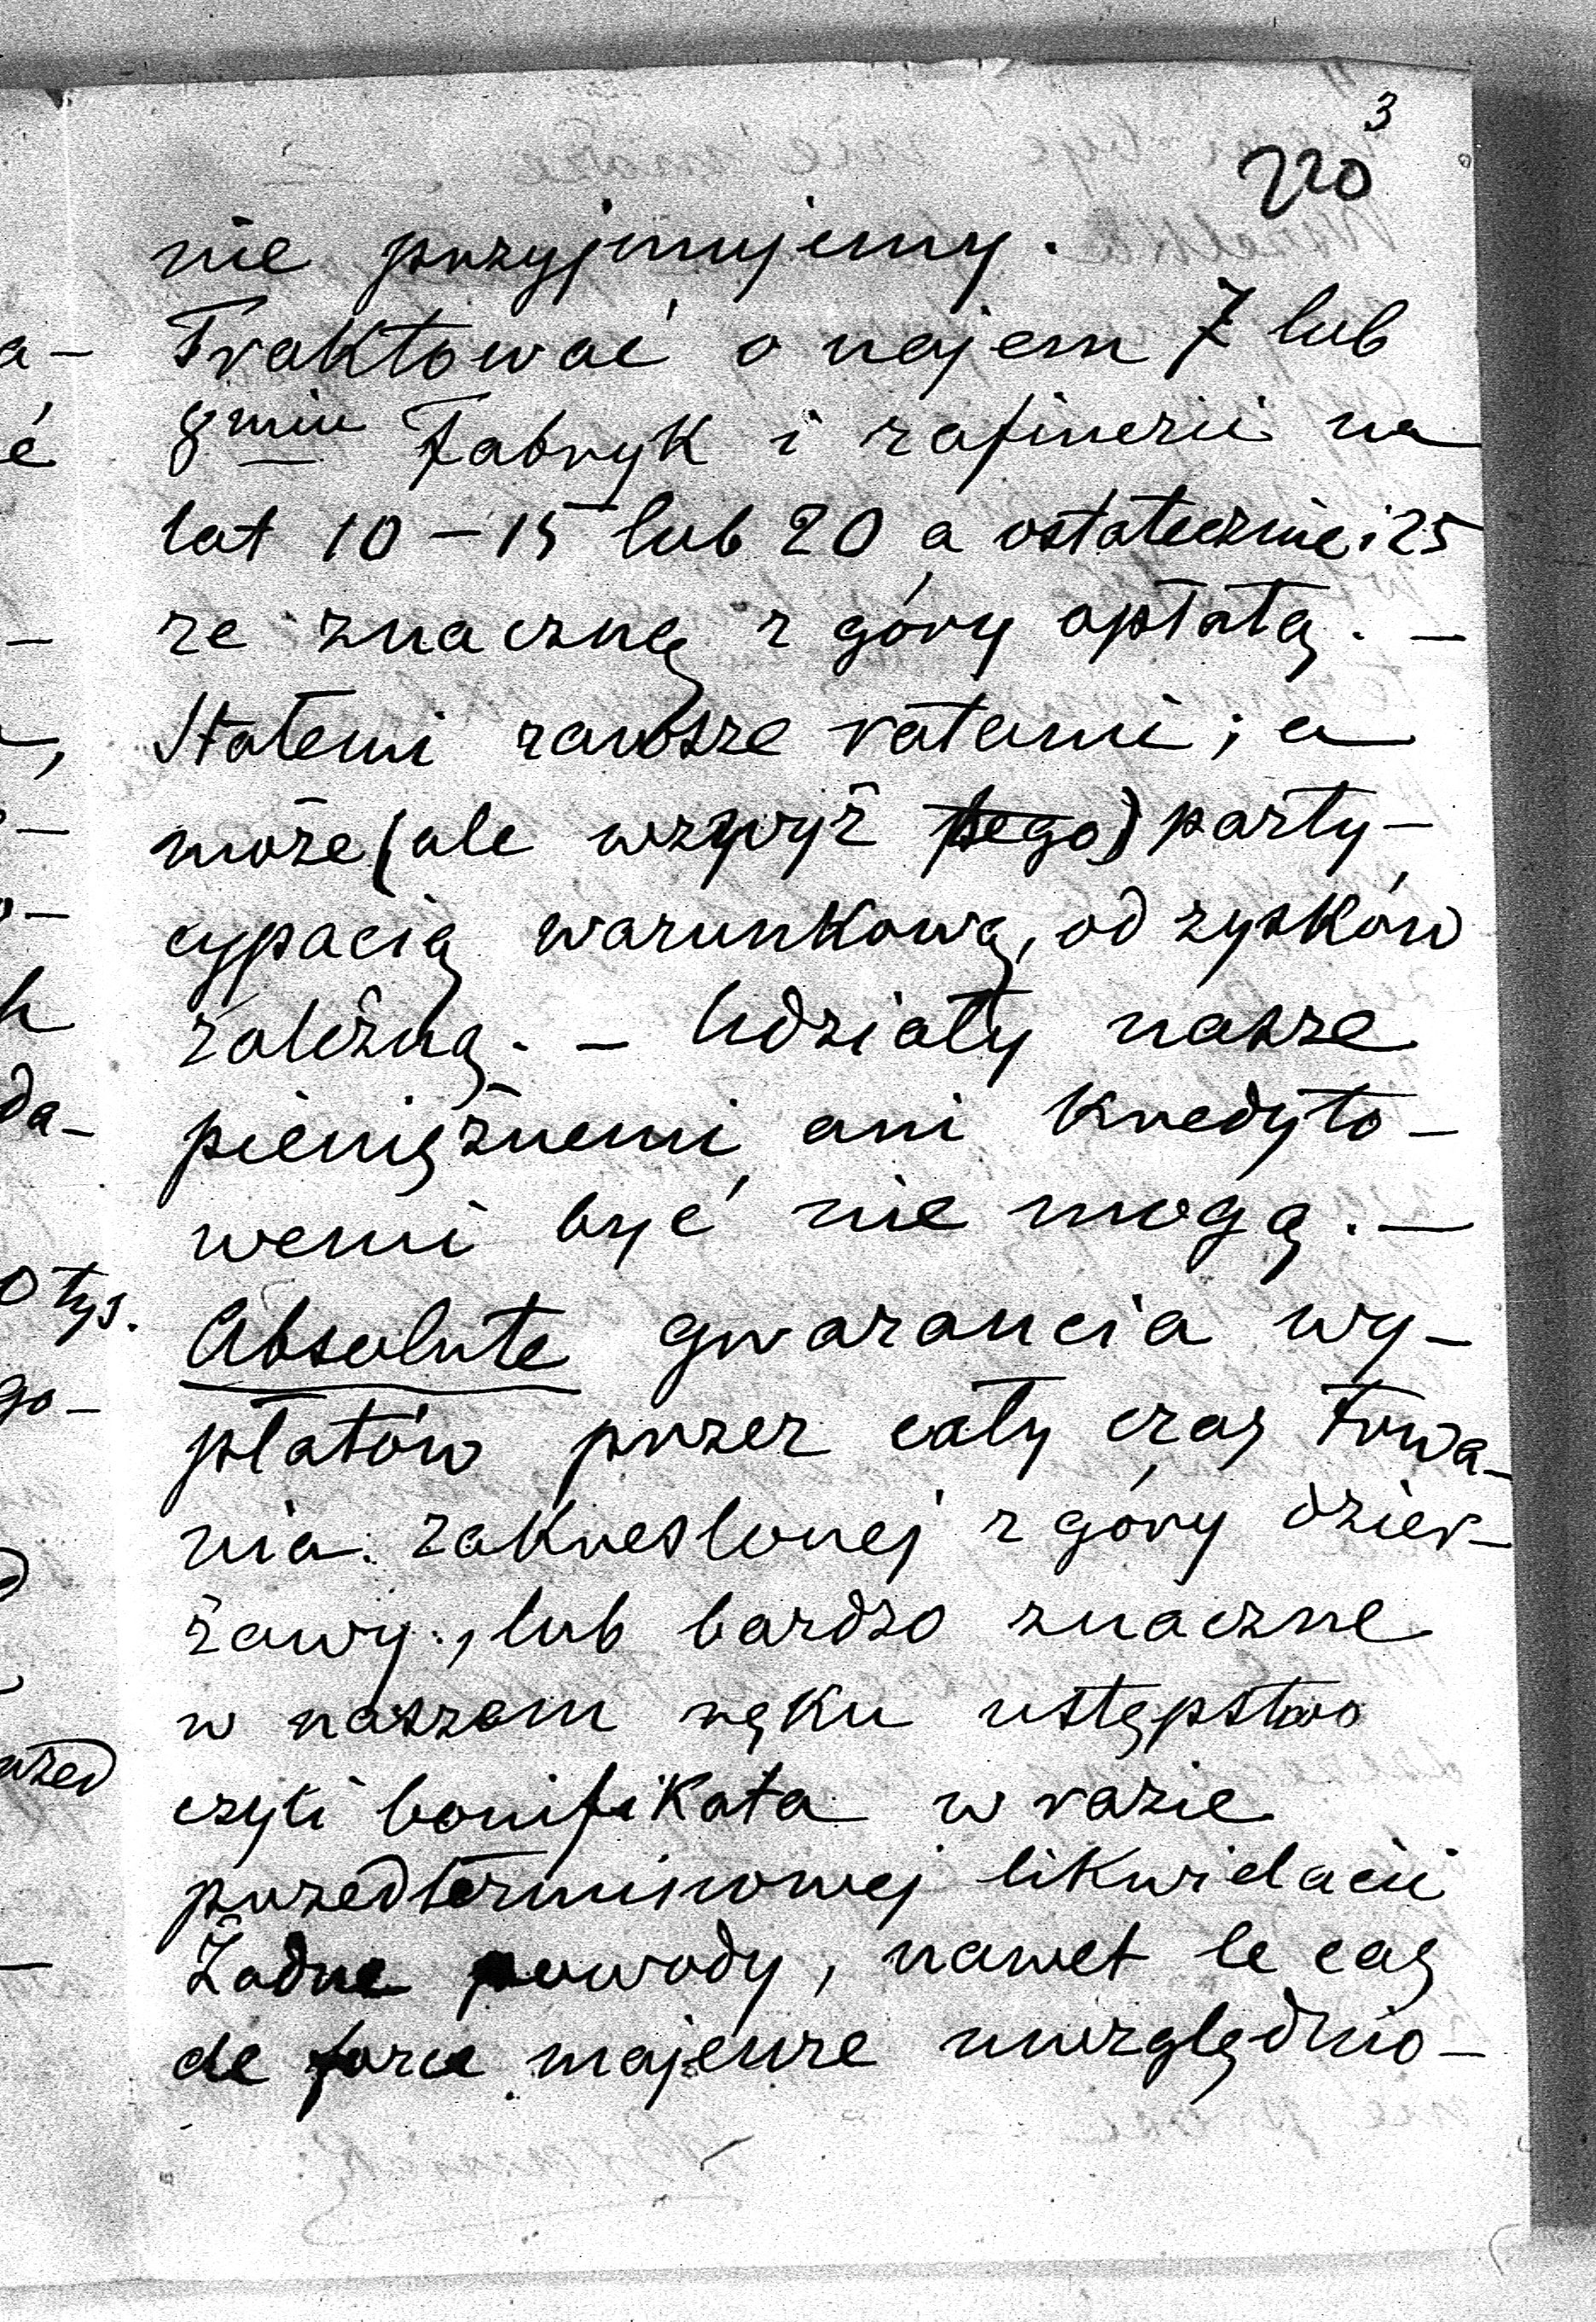 3
220
nie przyjmujemy.
Traktować o najem 7 lub
8miu Fabryk i rafinerii na
lat 10 – 15 lub 20 a ostatecznie i 25
ze znaczną z góry opłatą. –
Stałemi zawsze ratami; a
może (ale wzwyż tego) party-
cypacią warunkową, od zysków
zależną. – Udziały nasze
pieniężnemi ani kredyto-
wemi być nie mogą. –
Absolute gwarancia wy-
płatów przez cały czas trwa-
nia zakreslonej z góry dzier-
żawy, lub bardzo znaczne
w naszem ręku ustępstwo
czyli bonifikata w razie
przedterminowej likwidacii
Żadne powody, nawet le cas
de force majeure uwzględnio-
a-
é
h
da-
0 tys.
go-